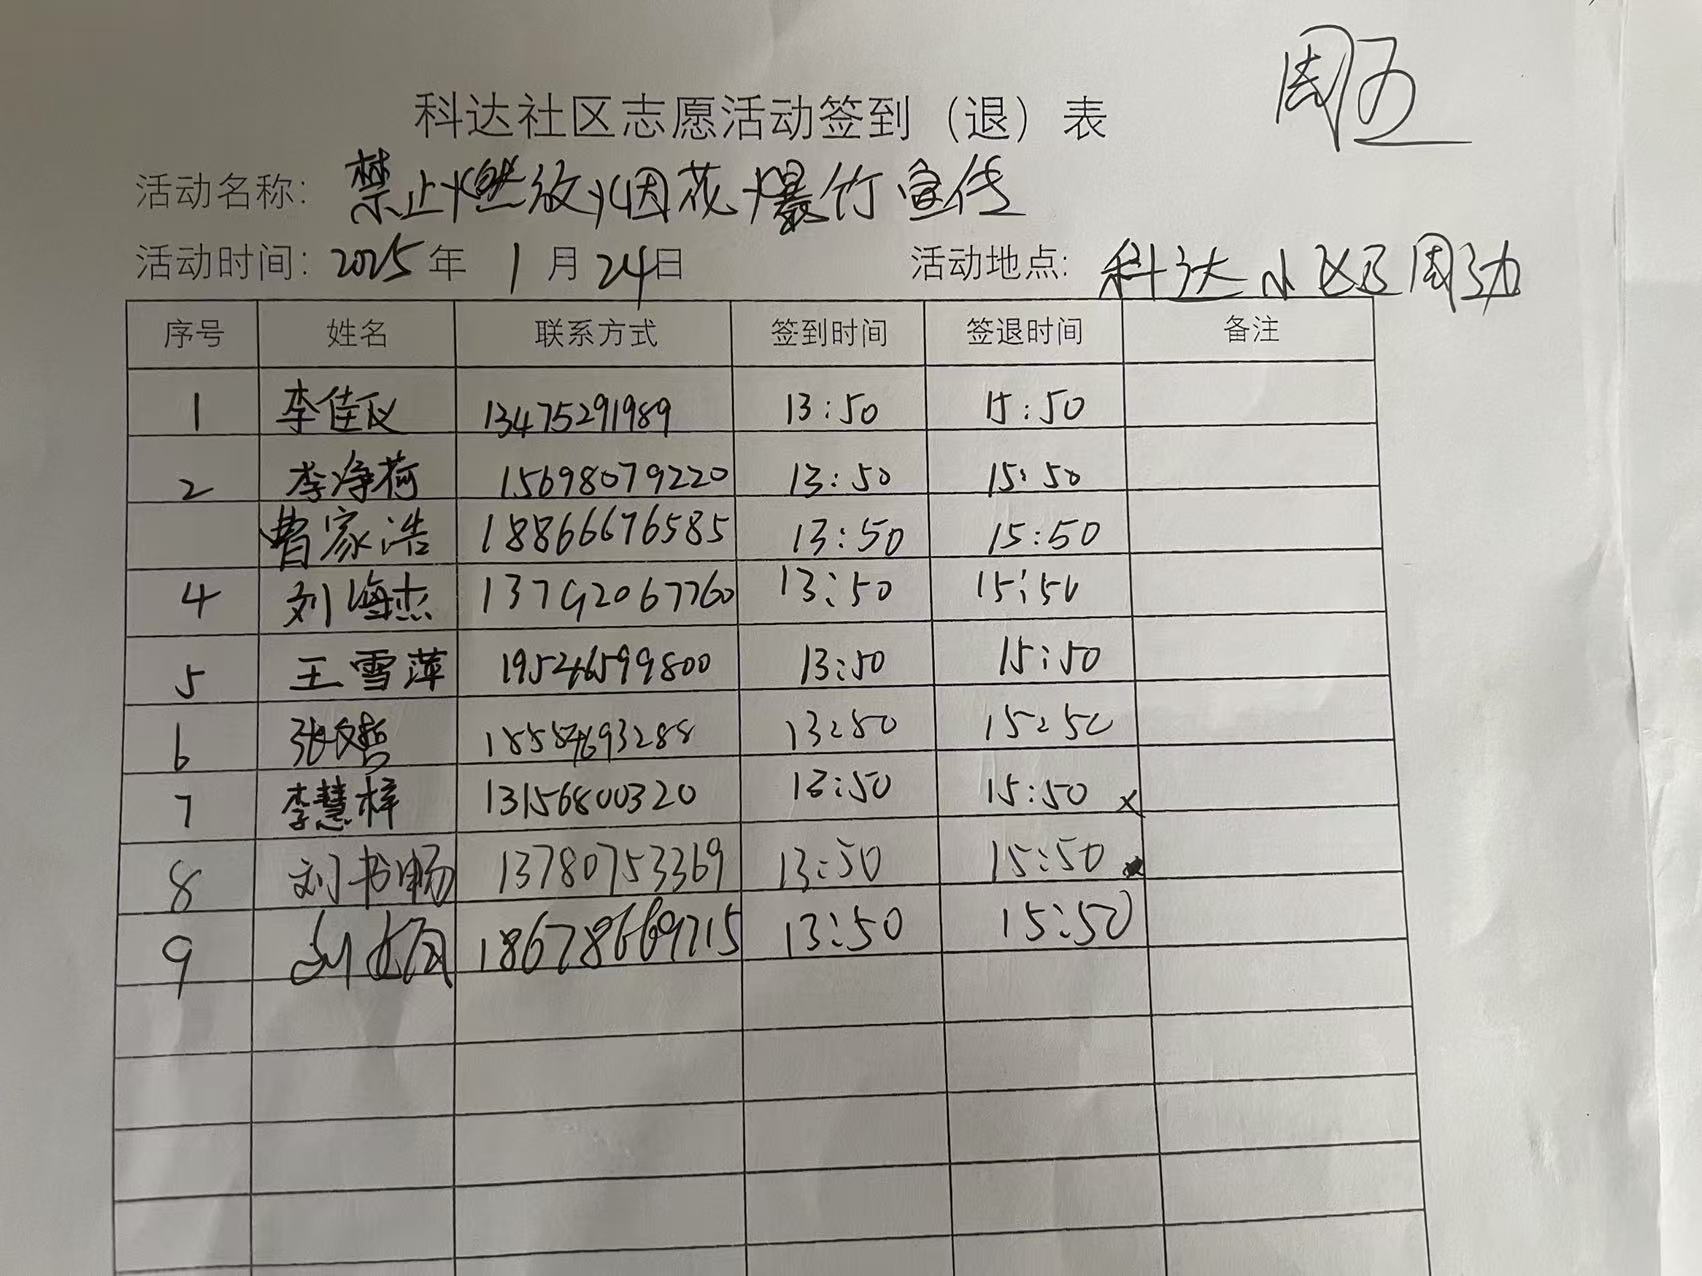 周五
科达社区志愿活动签到（退）表
活动名称：禁止燃放烟花爆竹宣传
活动时间：2025年 1月24日 活动地点：科达小区周边
序号 姓名 联系方式 签到时间 签退时间 备注
1 李佳仪 13475291989 13:50 15:50
2 李净荷 15698079220 13:50 15:50
曹家浩 18866676585 13:50 15:50
4 刘海杰 13792067760 13:50 15:50
5 王雪萍 19546599800 13:50 15:50
6 张文哲 13:50 15:50
7 李慧梓 13156800320 13:50 15:50 x
8 刘书畅 13780753369 13:50 15:50
9 刘 18678669715 13:50 15:50